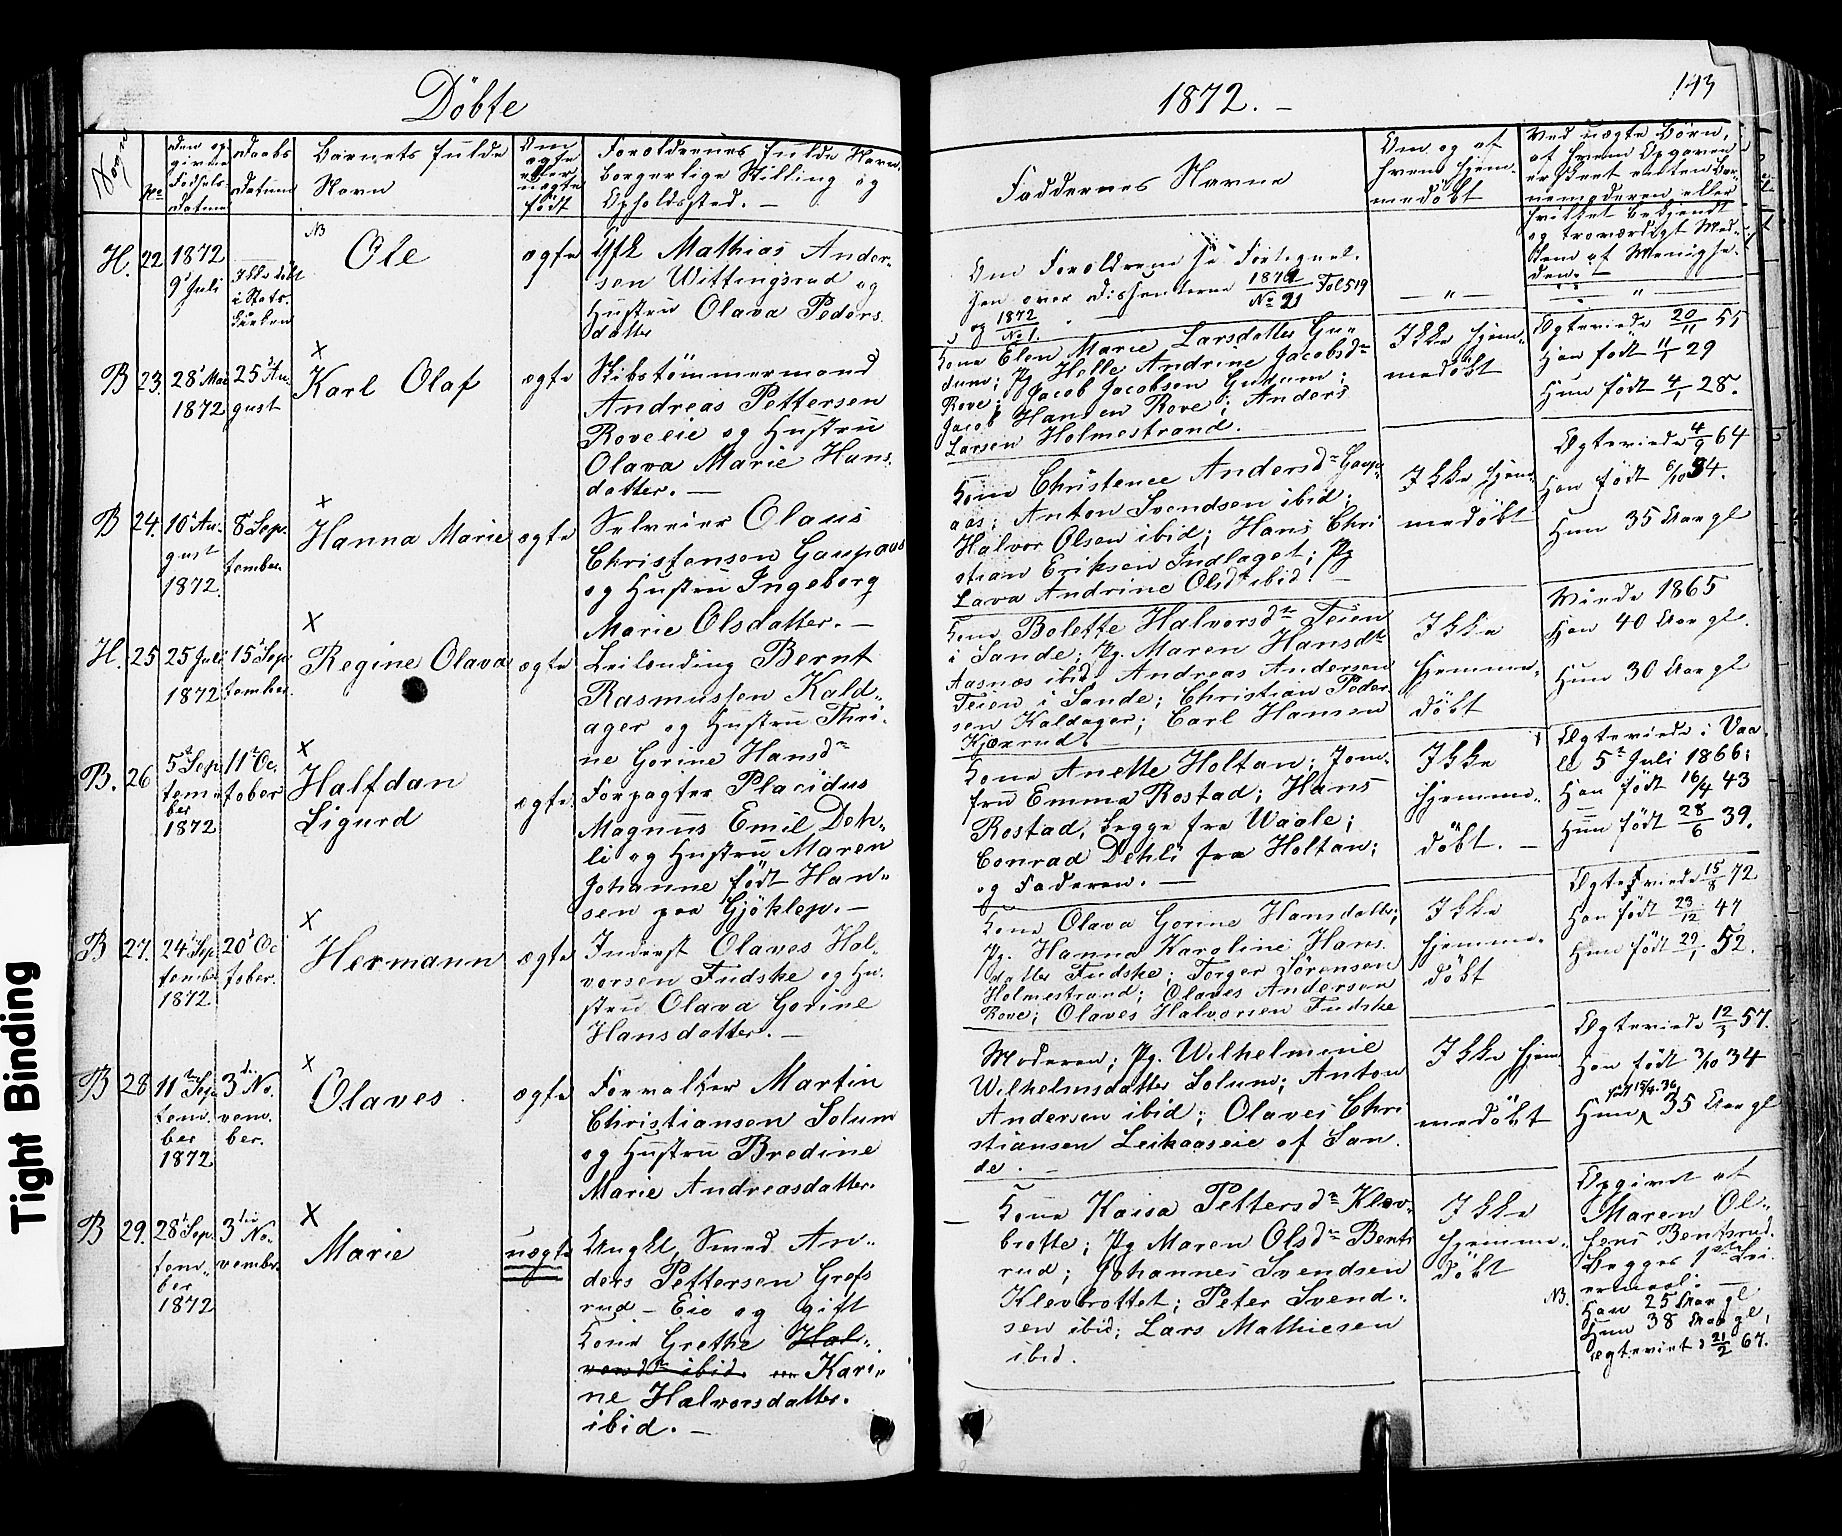 Döbte
1872. –
143
Sogne
No
Den op-
givne
Fødsels
Datum
Daabs
Datum
Barnets fulde
Navn
Om
ægte
eller
uægte
født
Forældrenes fulde Navn,
borgerlige Stilling og
Opholdssted. –
Faddernes Navne
Om og af
hvem hjem-
medöbt
Ved uægte Börn,
af hvem Opgaven
er skeet enten Bar-
nemoderen eller
hvilket bekjendt
og troværdigt Med-
lem af Menighe-
den. –
H. 22
1872
9 Juli
Ikke döbt
i Stats-
kirken
NB
Ole
ægte
Mathias Ander-
sen Wittingsrud og
Hustru Olava Peders
datter
Om Forældrene se Fortegnel-
sen over Dissenterne 1872 No 21 Fol 519
og 1872 No 1.
— " —
— " —
B 23.
28 Mai
1872
25 Au-
gust
X
Karl Olaf
ægte
Skibstömmermand
Andreas Pettersen
Roveeie og Hustru
Olava Marie Hans
datter. –
Kone Elen Marie Larsdatter Gu-
dum; Pg Helle Andrine Jacobsdr
Rove; Jacob Jacobsen Guhum;
Jacob Hansen Rove; Anders
Larsen Holmestrand.
Ikke hjem-
medöbt
Ægteviede 20/11 55
Han født 11/1 29
Hun født 4/1 28.
B 24.
10 Au-
gust
1872.
8 Sep-
tember
X
Hanna Marie
ægte
Selveier Olaus
Christensen Gaupaas
og Hustru Ingeborg
Marie Olsdatter. –
Kone Christence Andersdr Gaup-
aas; Anton Svendsen ibid;
Halvor Olsen ibid; Hans Chri
stian Eriksen Indlaget; Pg
Lava Andrine Olsdr ibid. –
Ikke hjem-
medöbt
Ægteviede 4/9 64
Han født 6/10 34.
Hun 35 Aar gl
H. 25
25 Juli
1872
15 Sep
tember.
X
Regine Olava
ægte
Leilending Bernt
Rasmussen Kald-
ager og Hustru Thri-
ne Gorine Hansdr
Kone Bolette Halvorsdr Teien
i Sande; Pg. Maren Hansdr
Aasnæs ibid; Andreas Andersen
Teien i Sande; Christian Peder-
sen Kaldager; Carl Hansen
Kjærrud.
Ikke
hjemme-
döbt
Viede 1865
Han 40 Aar gl.
Hun 30 Aar gl
B. 26
5 Sep
tem-
ber
1872
11 Oc-
tober
X
Halfdan
Sigurd
ægte
Forpagter Placidus
Magnus Emil Deh-
li og Hustru Maren
Johanne født Han-
sen paa Gjöklep. –
Kone Anette Holtan; Jom-
fru Emma Rostad; Hans
Rostad, begge fra Waale;
Conrad Dehli fra Holtan;
og Faderen. –
Ikke
hjemme-
döbt. –
Ægteviede i Vaa-
le 5 Juli 1866;
Han født 16/4 43
Hun født 28/6 39.
B 27.
24 Sep
tember
1872
20 Oc
tober.
X
Hermann
ægte
Inderst Olaves Hal-
vorsen Fudske og Hu-
stru Olava Gorine
Hansdatter. –
Kone Olava Gorine Hansdatter;
Pg. Hanna Karoline Hans
datter Fudske; Torger Sörensen
Holmestrand; Olaves Andersen
Rove; Olaves Halvorsen Fudske
Ikke
hjemme-
döbt
Ægteviede 15/8 72
Han født 23/12 47
Hun født 29/1 52.
B 28
11 Sep
tem-
ber
1872
3die No-
vem-
ber.
X
Olaves
ægte
Forvalter Martin
Christiansen Solum
og Hustru Bredine
Marie Andreasdatter.
Moderen; Pg. Wilhelmine
Wilhelmsdatter Solum; Anton
Andersen ibid; Olaves Chri
stiansen Leikaaseie af San-
de. –
Ikke hjem
medöbt
Ægteviede 12/3 57.
Han født 3/10 34
født 15/4 36
Hun 35 Aar gl
B 29.
28 Sep
tem-
ber
1872
3die No-
vember
X
Marie
uægte
Ungkl, Smed An-
ders Pettersen Grefs
rud – Eie og gift
Kone Grethe Hal-
vorsdr ibid. Kari-
ne Halvorsdatter.
ibid. –
Kone Kaisa Pettersdr Klev-
brotte; Pg Maren Olsdr Bents
rud; Johannes Svendsen
Klevbrottet; Peter Svend-
sen ibid; Lars Mathiesen
ibid.
Ikke
hjemme-
döbt
Opgivet af
Maren Ol-
sens Bentsrud.
Begges 1ste Lei-
ermaal. –
NB. Han 25 Aar gl
Hun 38 Aar gl,
ægteviet 21/2 67.
Tight Binding